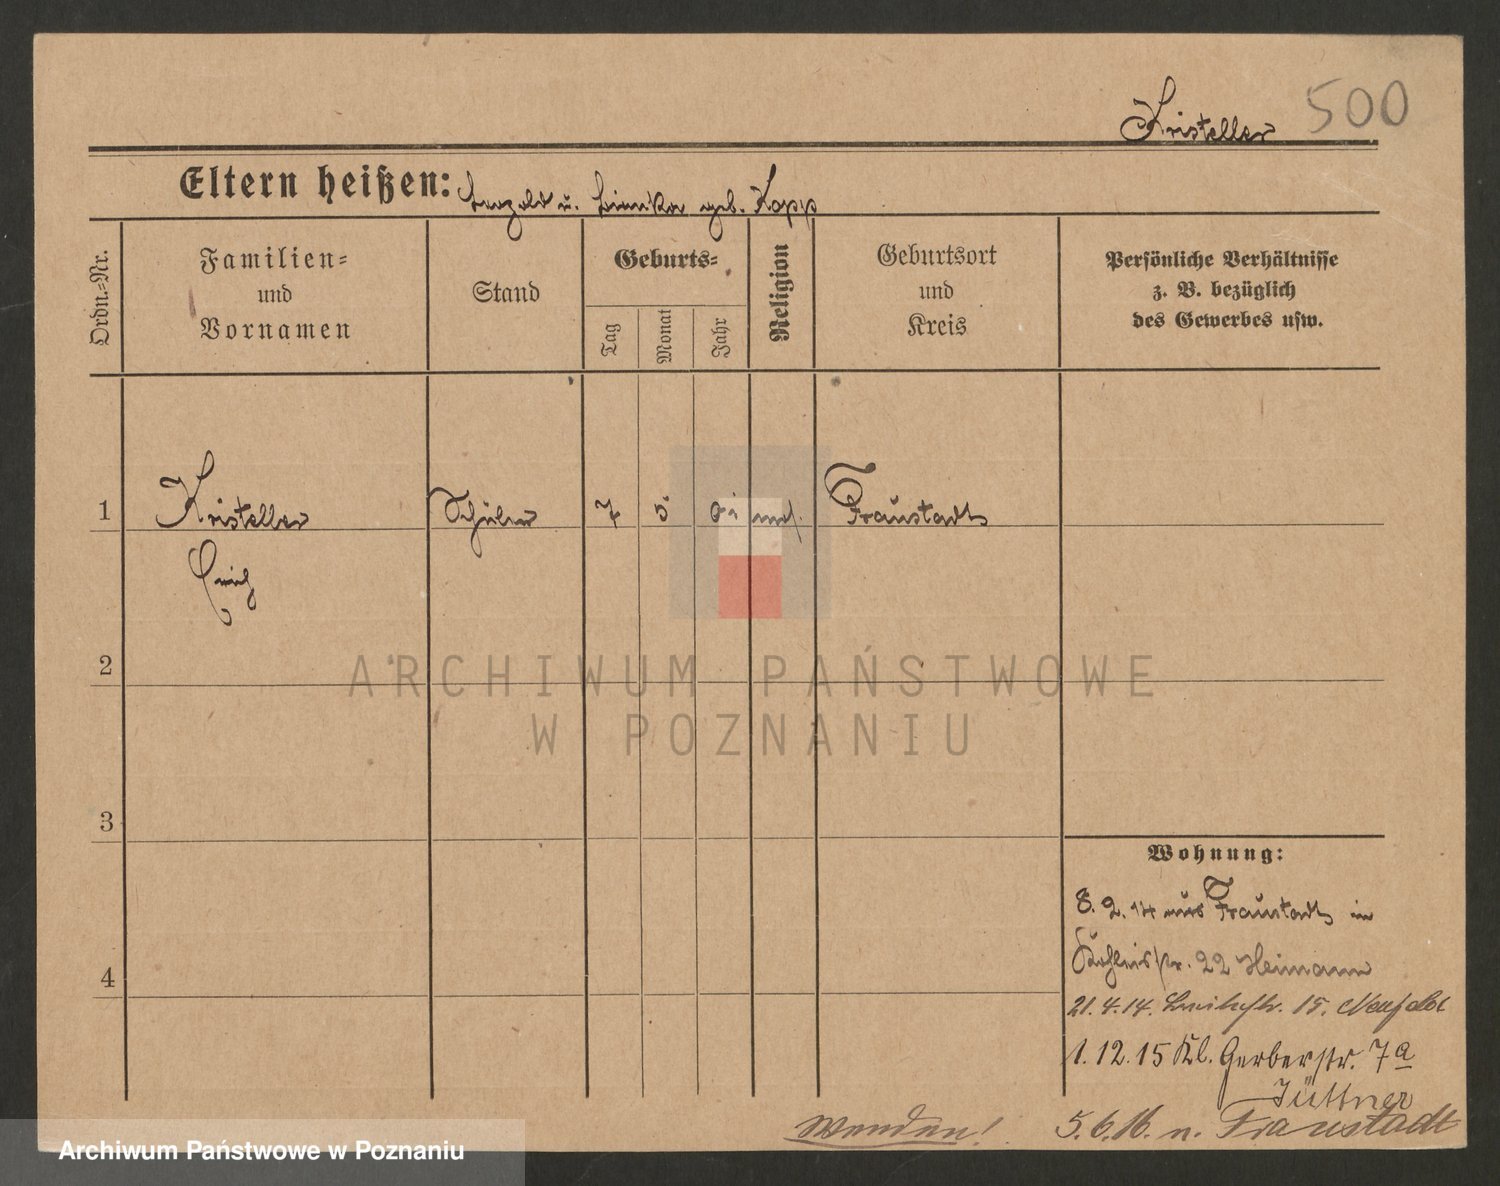 Kristeller 500
Eltern heißen: Leopold u. geb. Kopp
Ordn.-Nr.
Familien-
und
Vornamen
Stand
Geburts-
Tag
Monat
Jahr
Religion
Geburtsort
und
Kreis
Persönliche Verhältnisse
z. B. bezüglich
des Gewerbes usw.
1 Kristeller Schüler 7 5 mos. Fraustadt
Erich
2
ARCHIWUM PAŃSTWOWE
W POZNANIU
3
Wohnung:
8.2.14 aus Fraustadt in
22 Heimann
4
21.4.14. Breitestr. 15. Neufeldt
1.12.15 Kl. Gerberstr. 7a
Jüttner
Wenden! 5.6.16 n. Fraustadt
Archiwum Państwowe w Poznaniu